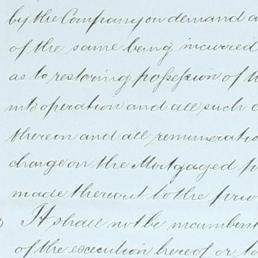 by the Company on demand a
of the same being incurred
as to restoring possession of th
into operation and all such c
thereon and all remuneratio
charge on the Mortgaged p
made thereout to the perso
It shall not be incumbent
of the execution hereof or to